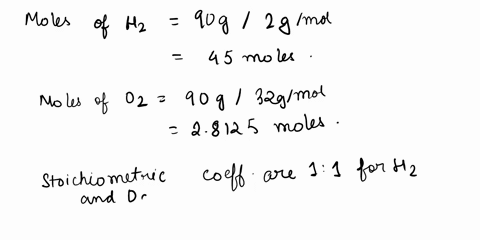 Moles of H2 = 90g / 2g/mol
= 45 moles.
Moles of O2 = 90g / 32g/mol
= 2.8125 moles.
Stoichiometric coeff. are 1:1 for H2
and